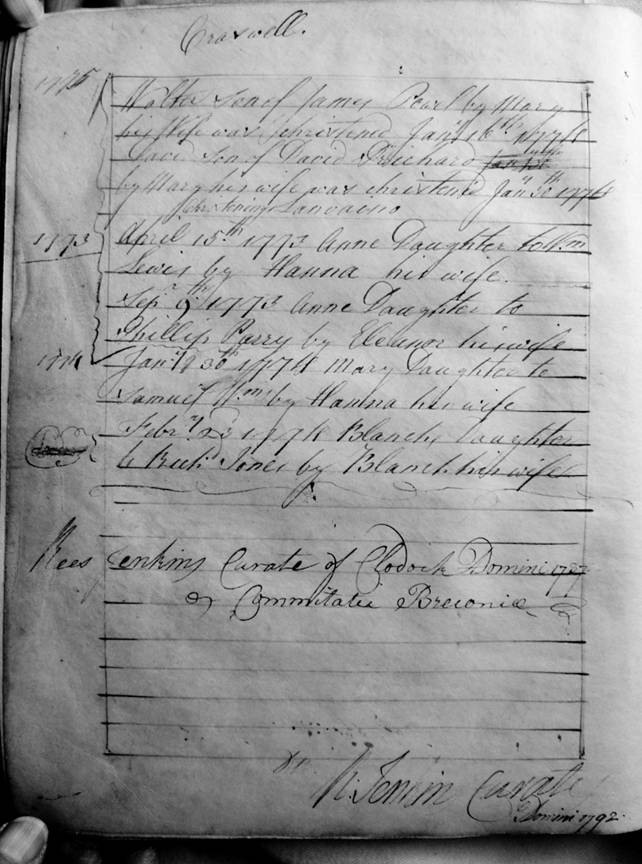 Craswell.
1775
Walter Son of James Powl by Mary
his Wife was christened Janry 16th 1774
Son of David Prichard
by Mary his wife was christened Janry 30th 1774
Christenings Lanvoino
1773 April 15th 1773 Anne Daughter to Wm
Lewis by Hanna his wife.
Sepr 9th 1773 Anne Daughter to
Phillip Parry by Eleanor his wife
1774 Janry 30th 1774 Mary Daughter to
Samuel Wms by Hanna his wife
Febry 23 1774 Blanch Daughter
to Richd Jones by Blanch his wife
Rees Jenkins Curate of Clodock Domini 1797
Commitatie Breconiæ
R. Jenkin Curate
Domini 1792.